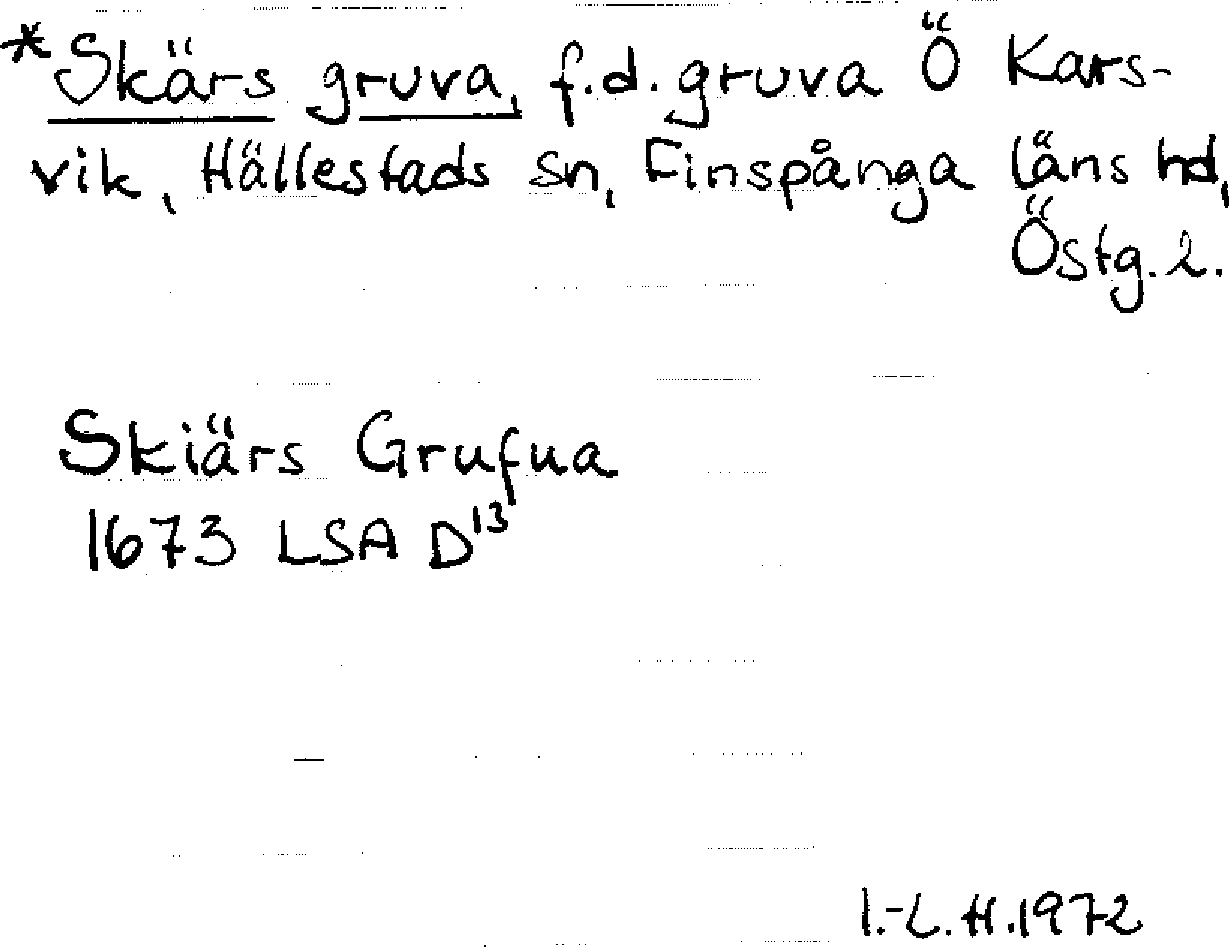 *Skärs gruva, f.d. gruva Ö Kars-
vik, Hällestads sn, Finspånga läns hd,
Östg. l.
Skiärs Grufua
1673 LSA D13
I.-L. H. 1972